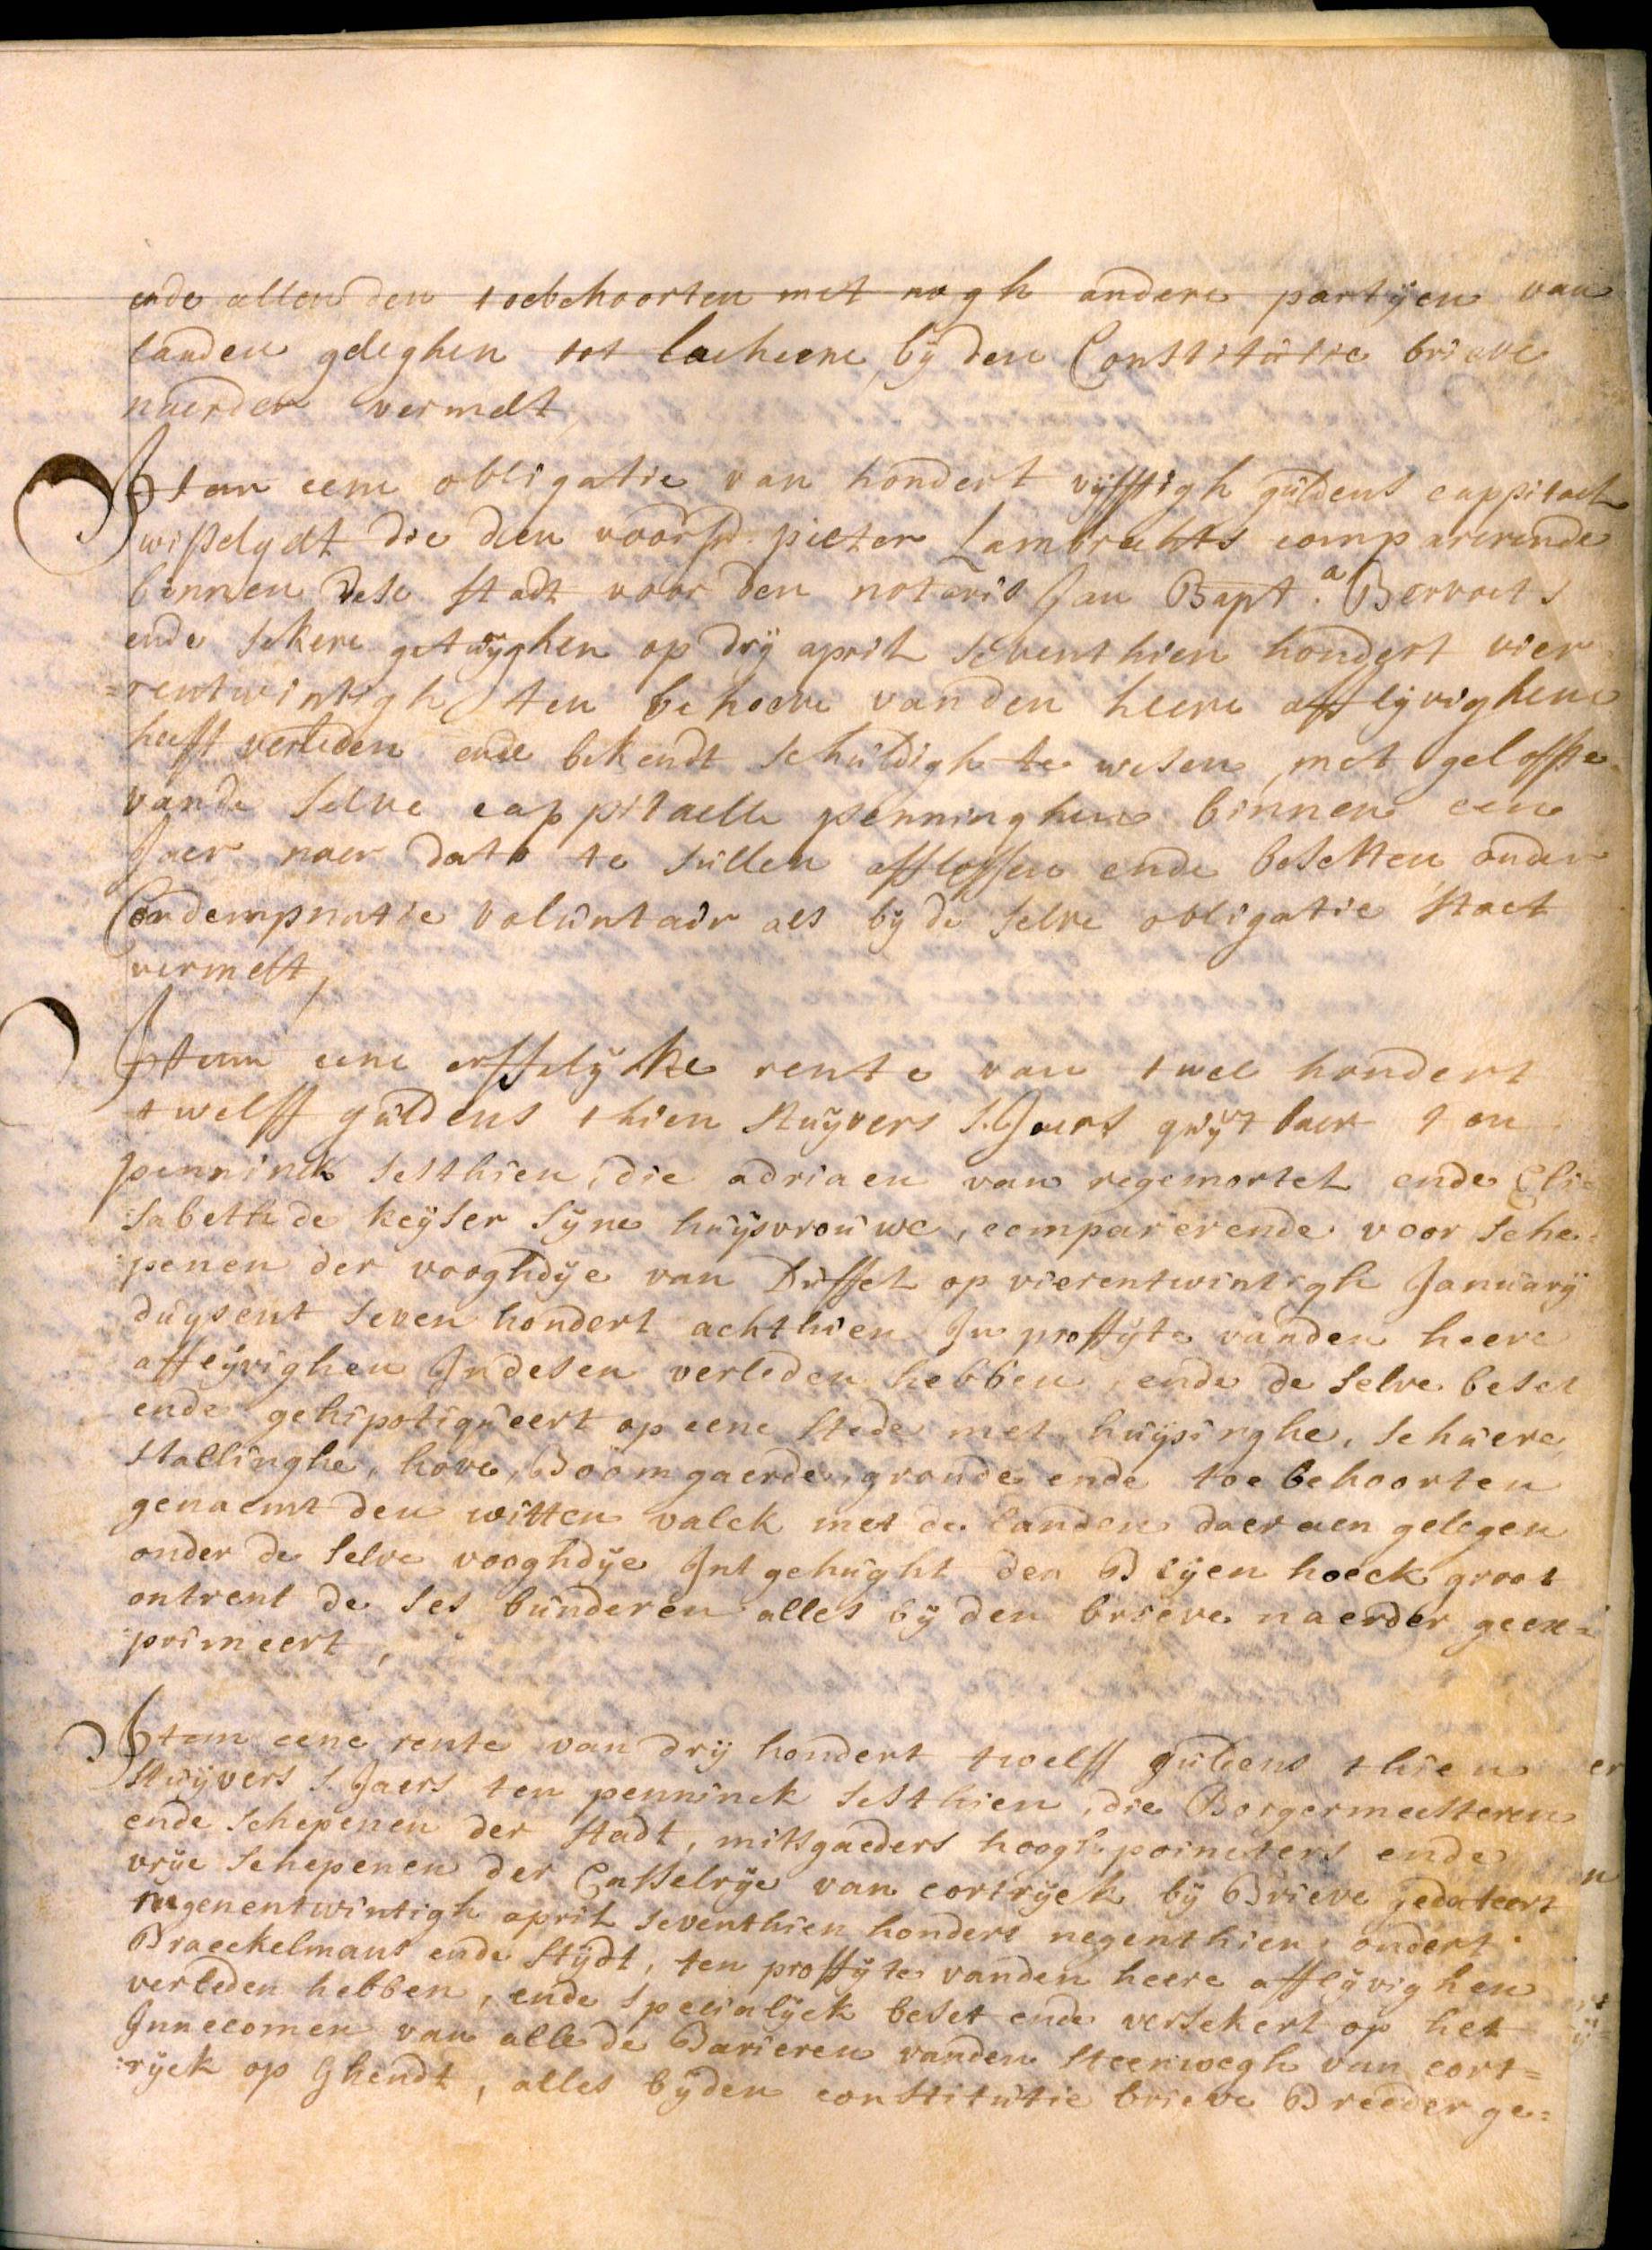 ende allen den toebehoorten met nogh andere partÿen van
landen geleghen tot Laeheene bÿ den Constitutie brieve
naerder vermelt,
Item eene obligatie van hondert vÿfftigh guldens cappitael
wisselgelt die den voorsd. pieter Lambrechts comparerende
binnen dese stadt voor den notaris Jan Bapt.a Bervoets
ende sekere getuÿghen op drÿ april seventhien hondert vier=
=rentwintigh ten behoeve vanden heere afflÿvighene
heeft verleden ende bekendt schuldigh te wesen, met geloffte
vande selve cappitaelle penninghen binnen een
Jaer naer dato te sullen afflossen ende besetten onder
Condempnatie voluntair als bÿ de selve obligatie staet
vermelt,
Item eene erffelÿke rente van twee hondert
twelff guldens thien stuÿvers s'Jaers quÿtbaer ten
penninck sesthien, die adriaen van regemortel ende Eli=
sabeth de keÿser sÿne huÿsvrouwe, comparerende voor sche=
=penen der vooghdÿe van Duffel op vierentwintigh Januarÿ
duÿsent seven hondert achthien In proffÿte vanden heere
afflÿvighen Indesen verleden hebben, ende de selve beset
ende gehipotiqueert op eene stede met huÿsinghe, schuere,
stallinghe, hove, Boomgaerde, gronde ende toebehoorten
genaemt den witten valck met de landen daer aen gelegen
onder de selve vooghdÿe Int gehught den Bÿen hoeck groot
ontrent de ses bunderen alles bÿ den brieve naerder geex=
=primeert,
Item eene rente van drÿ hondert twelff guldens thien
stuÿvers s'Jaers ten penninck sesthien, die Borgermeesteren
ende schepenen der stadt, mitsgaeders hoogh pointers ende
vrÿe schepenen der Casselrÿe van cortrÿck bÿ Brieve gedateert
negenentwintigh april seventhien hondert negenthien, ondert.
Braeckelmans ende Stÿdt, ten proffÿte vanden heere afflÿvighen
verleden hebben, ende specialÿck beset ende versekert op het
Innecomen van alle de Barieren vanden steenwegh van cort=
=rÿck op Ghendt, alles bÿden constitutie brieve Breeder ge=